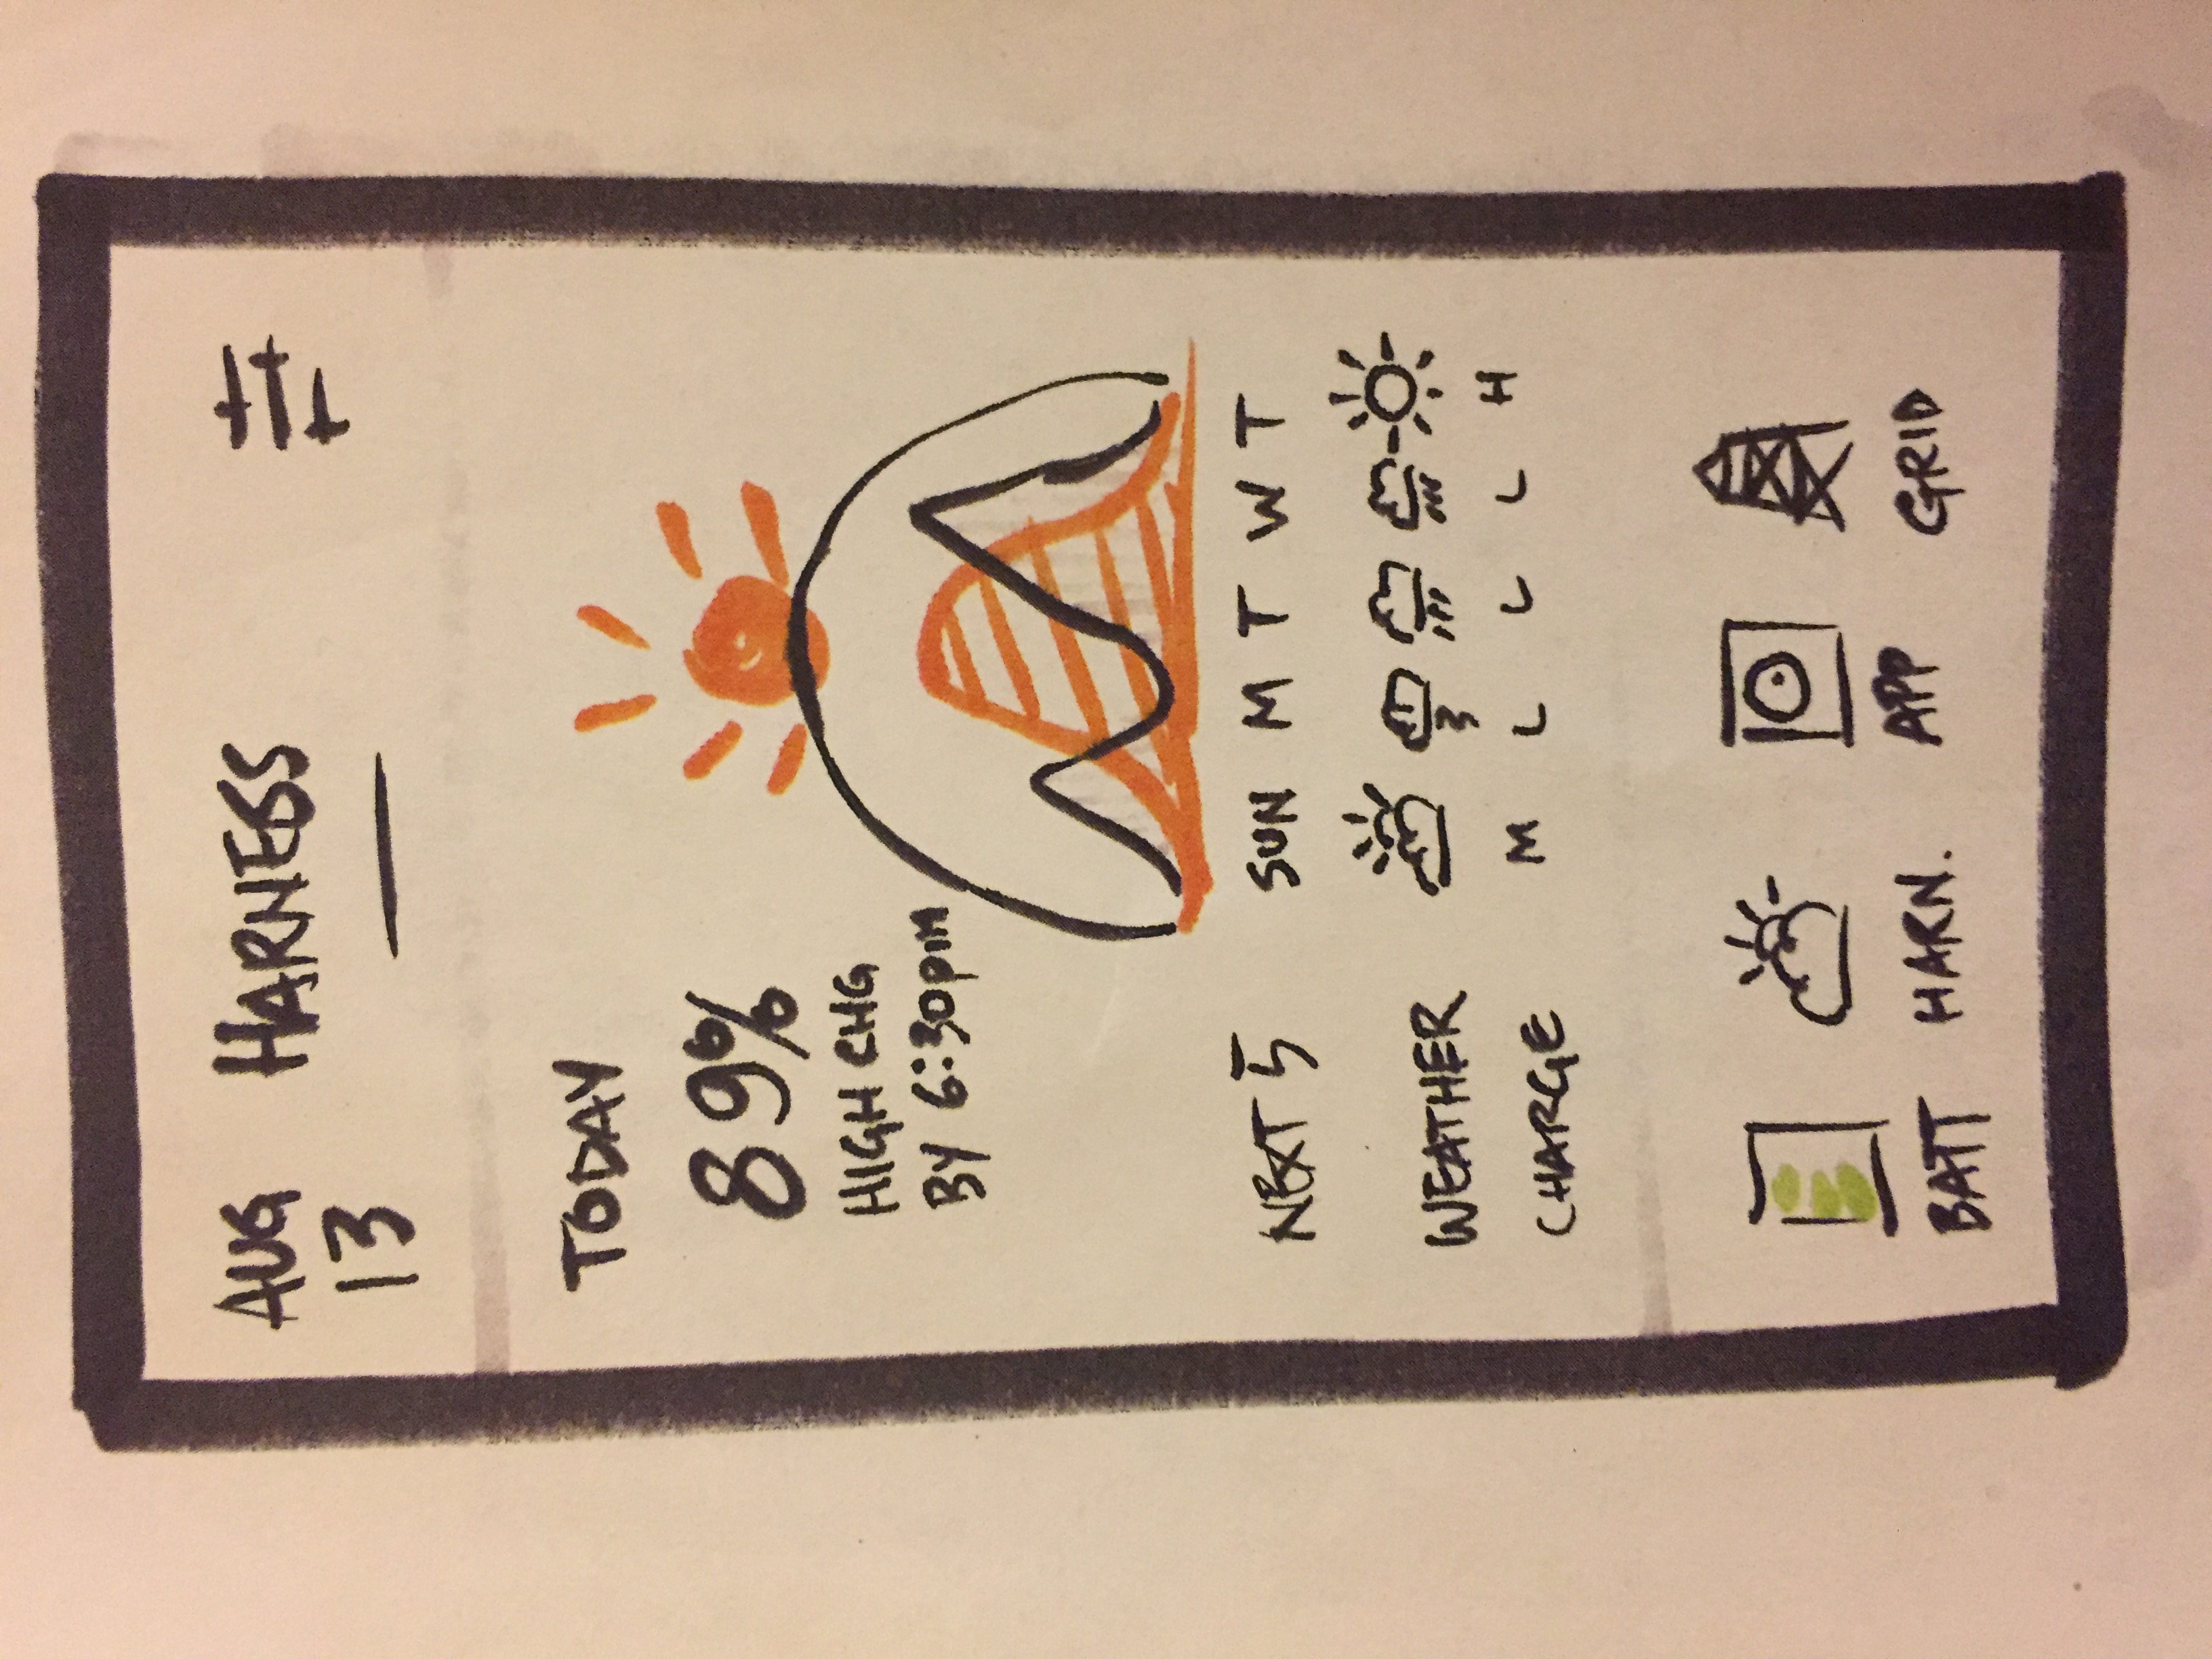 AUG HARNESS
13
TODAY
89%
HIGH CHG
BY 6:30pm
NEXT 5 SUN M T W T
WEATHER
CHARGE M L L L H
BATT HARN. APP GRID